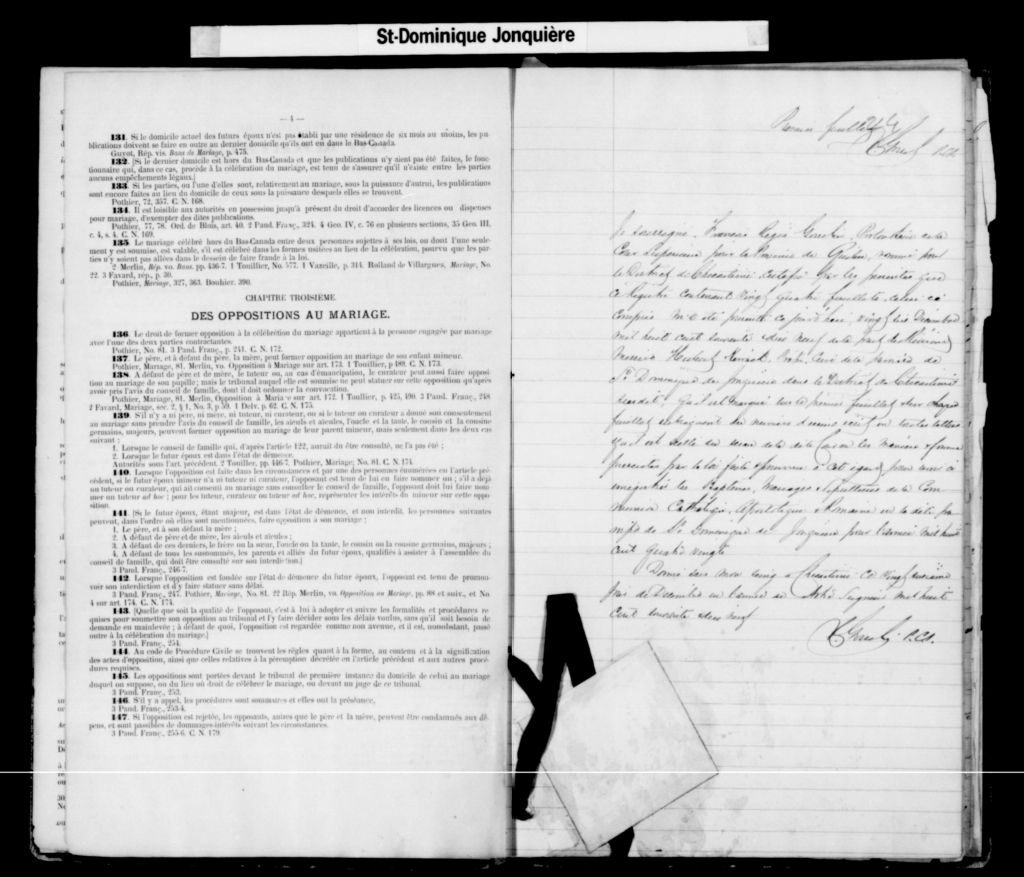 St-Dominique Jonquière
— 4 —
131. Si le domicile actuel des futurs époux n'est pas établi par une résidence de six mois au moins, les publications doivent se faire en outre au dernier domicile qu'ils ont eu dans le Bas-Canada.
Guyot, Rép. vis. Bans de Mariage, p. 475.
132. [Si le dernier domicile est hors du Bas-Canada et que les publications n'y aient pas été faites, le fonctionnaire qui, dans ce cas, procède à la célébration du mariage, est tenu de s'assurer qu'il n'existe entre les parties aucuns empêchements légaux.]
133. Si les parties, ou l'une d'elles sont, relativement au mariage, sous la puissance d'autrui, les publications sont encore faites au lieu du domicile de ceux sous la puissance desquels elles se trouvent.
Pothier, 72, 357. C. N. 168.
134. Il est loisible aux autorités en possession jusqu'à présent du droit d'accorder des licences ou dispenses pour mariage, d'exempter des dites publications.
Pothier, 77, 78. Ord. de Blois, art. 40. 2 Pand. Franç., 324. 4 Geo. IV, c. 76 en plusieurs sections, 35 Geo. III, c. 4, s. 4. C. N. 169.
135. Le mariage célébré hors du Bas-Canada entre deux personnes sujettes à ses lois, ou dont l'une seulement y est soumise, est valable, s'il est célébré dans les formes usitées au lieu de la célébration, pourvu que les parties n'y soient pas allées dans le dessein de faire fraude à la loi.
2 Merlin, Rép. vo. Bans. pp. 436-7. 1 Toullier, No. 577. 1 Vazeille, p. 314. Rolland de Villargues, Mariage, No. 22. 3 Favard, rép., p. 30.
Pothier, Mariage, 327, 363. Bouhier. 390.
CHAPITRE TROISIÈME
DES OPPOSITIONS AU MARIAGE.
136. Le droit de former opposition à la célébration du mariage appartient à la personne engagée par mariage avec l'une des deux parties contractantes.
Pothier, No. 81. 3 Pand. Franç., p. 241. C. N. 172.
137. Le père, et à défaut du père, la mère, peut former opposition au mariage de son enfant mineur.
Pothier, Mariage, 81. Merlin, vo. Opposition à Mariage sur art. 173. 1 Toullier, p 489. C. N. 173.
138. A défaut de père et de mère, le tuteur ou, au cas d'émancipation, le curateur peut aussi faire opposition au mariage de son pupille; mais le tribunal auquel elle est soumise ne peut statuer sur cette opposition qu'après avoir pris l'avis du conseil de famille, dont il doit ordonner la convocation.
Pothier, Mariage, 81. Merlin, Opposition à Mariage sur art. 172. 1 Toullier, p. 425, 490. 3 Pand. Franç., 248. 2 Favard, Mariage, sec. 2, § 1, No. 3, p. 59. 1 Delv. p. 62. C. N. 175.
139. S'il n'y a ni père, ni mère, ni tuteur, ni curateur, ou si le tuteur ou curateur a donné son consentement au mariage sans prendre l'avis du conseil de famille, les aïeuls et aïeules, l'oncle et la tante, le cousin et la cousine germains, majeurs, peuvent former opposition au mariage de leur parent mineur, mais seulement dans les deux cas suivant :
1. Lorsque le conseil de famille qui, d'après l'article 122, aurait du être consulté, ne l'a pas été ;
2. Lorsque le futur époux est dans l'état de démence.
Autorités sous l'art. précédent. 2 Touiller, pp. 446-7. Pothier, Mariage; No. 81. C. N. 174.
140. Lorsque l'opposition est faite dans les circonstances et par une des personnes énumérées en l'article précédent, si le futur époux mineur n'a ni tuteur ni curateur, l'opposant est tenu de lui en faire nommer un ; s'il a déjà un tuteur ou curateur, qui ait consenti au mariage sans consulter le conseil de famille, l'opposant doit lui faire nommer un tuteur ad hoc ; pour les tuteur, curateur ou tuteur ad hoc, représenter les intérêts du mineur sur cette opposition.
141. [Si le futur époux, étant majeur, est dans l'état de démence, et non interdit, les personnes suivantes peuvent, dans l'ordre où elles sont mentionnées, faire opposition à son mariage ;
1. Le père, et à son défaut la mère ;
2. A défaut de père et de mère, les aïeuls et aïeules ;
3. A défaut de ces derniers, le frère ou la sœur, l'oncle ou la tante, le cousin ou la cousine germains, majeurs ;
4. A défaut de tous les susnommés, les parents et alliés du futur époux, qualifiés à assister à l'assemblée du conseil de famille, qui doit être consulté sur son interdiction.]
3 Pand. Franç., 246-7.
142. Lorsque l'opposition est fondée sur l'état de démence du futur époux, l'opposant est tenu de promouvoir son interdiction et d'y faire statuer sans délai.
3 Pand. Franç., 247. Pothier, Mariage, No. 81. 22 Rép. Merlin, vo. Opposition au Mariage, pp. 88 et suiv., et No 4 sur art. 174. C. N. 174.
143. [Quelle que soit la qualité de l'opposant, c'est à lui à adopter et suivre les formalités et procédures requises pour soumettre son opposition au tribunal et l'y faire décider sous les délais voulus, sans qu'il soit besoin de demande en mainlevée ; à défaut de quoi, l'opposition est regardée comme non avenue, et il est, nonobstant, passé outre à la célébration du mariage.]
3 Pand. Franç., 254.
144. Au code de Procédure Civile se trouvent les règles quant à la forme, au contenu et à la signification des actes d'opposition, ainsi que celles relatives à la péremption décrétée en l'article précédent et aux autres procédures requises.
145. Les oppositions sont portées devant le tribunal de première instance du domicile de celui au mariage duquel on s'oppose, ou du lieu où doit de célébrer le mariage, ou devant un juge de ce tribunal.
3 Pand. Franç., 253.
146. S'il y a appel, les procédures sont sommaires et elles ont la préséance.
3 Pand. Franç., 253-4.
147. Si l'opposition est rejetée, les opposants, autres que le père et la mère, peuvent être condamnés aux dépens, et sont passibles de dommages-intérêts suivant les circonstances.
3 Pand. Franç., 255-6. C. N. 179.
Premier feuillet
P.C.S.
Je soussigné, François Régis Gosselin, Protonotaire de la
Cour Supérieure pour la Province de Québec, nommé pour
le District de Chicoutimi Certifie par les présentes que
ce Registre contenant vingt quatre feuillets, celui ci
compris m'a été présenté ce jourd'hui, vingt
mil huit cent soixante dix neuf de la part du Révérend
Messire Hubert Kérouack Prêtre Curé de la Paroisse de
St Dominique de Jonquière dans le District de Chicoutimi
susdit; Qu'il est marqué sur le premier feuillet et sur chaque
feuillet subséquent du numéro d'icelui écrit en toutes lettres
qu'il est scellé du sceau de la dite Cour en la manière & forme
prescrites par la loi faite & pourvue à cet égard, pour servir à
enregistrer les Baptêmes, Mariages & Sépultures de la Com-
munion Catholique, Apostolique & Romaine en la dite pa-
roisse de St Dominique de Jonquière pour l'année mil huit
cent Quatre vingts
Donné sous mon seing à Chicoutimi Ce Vingt
jour de Décembre en l'année de Notre Seigneur mil huit
cent soixante dix neuf
P.C.S.